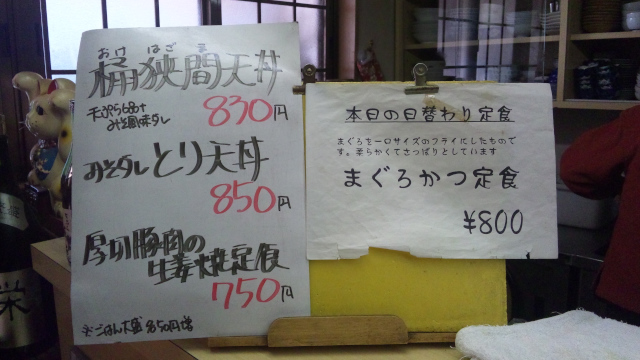 おけはざま
桶狭間天丼
天ぷら6ヶ
みそ風味タレ
830円
みそダレとり天丼
850円
厚切豚肉の
生姜焼定食
750円
本日の日替わり定食
まぐろを一口サイズのフライにしたもので
す。柔らかくてさっぱりとしています
まぐろかつ定食
¥800
栄